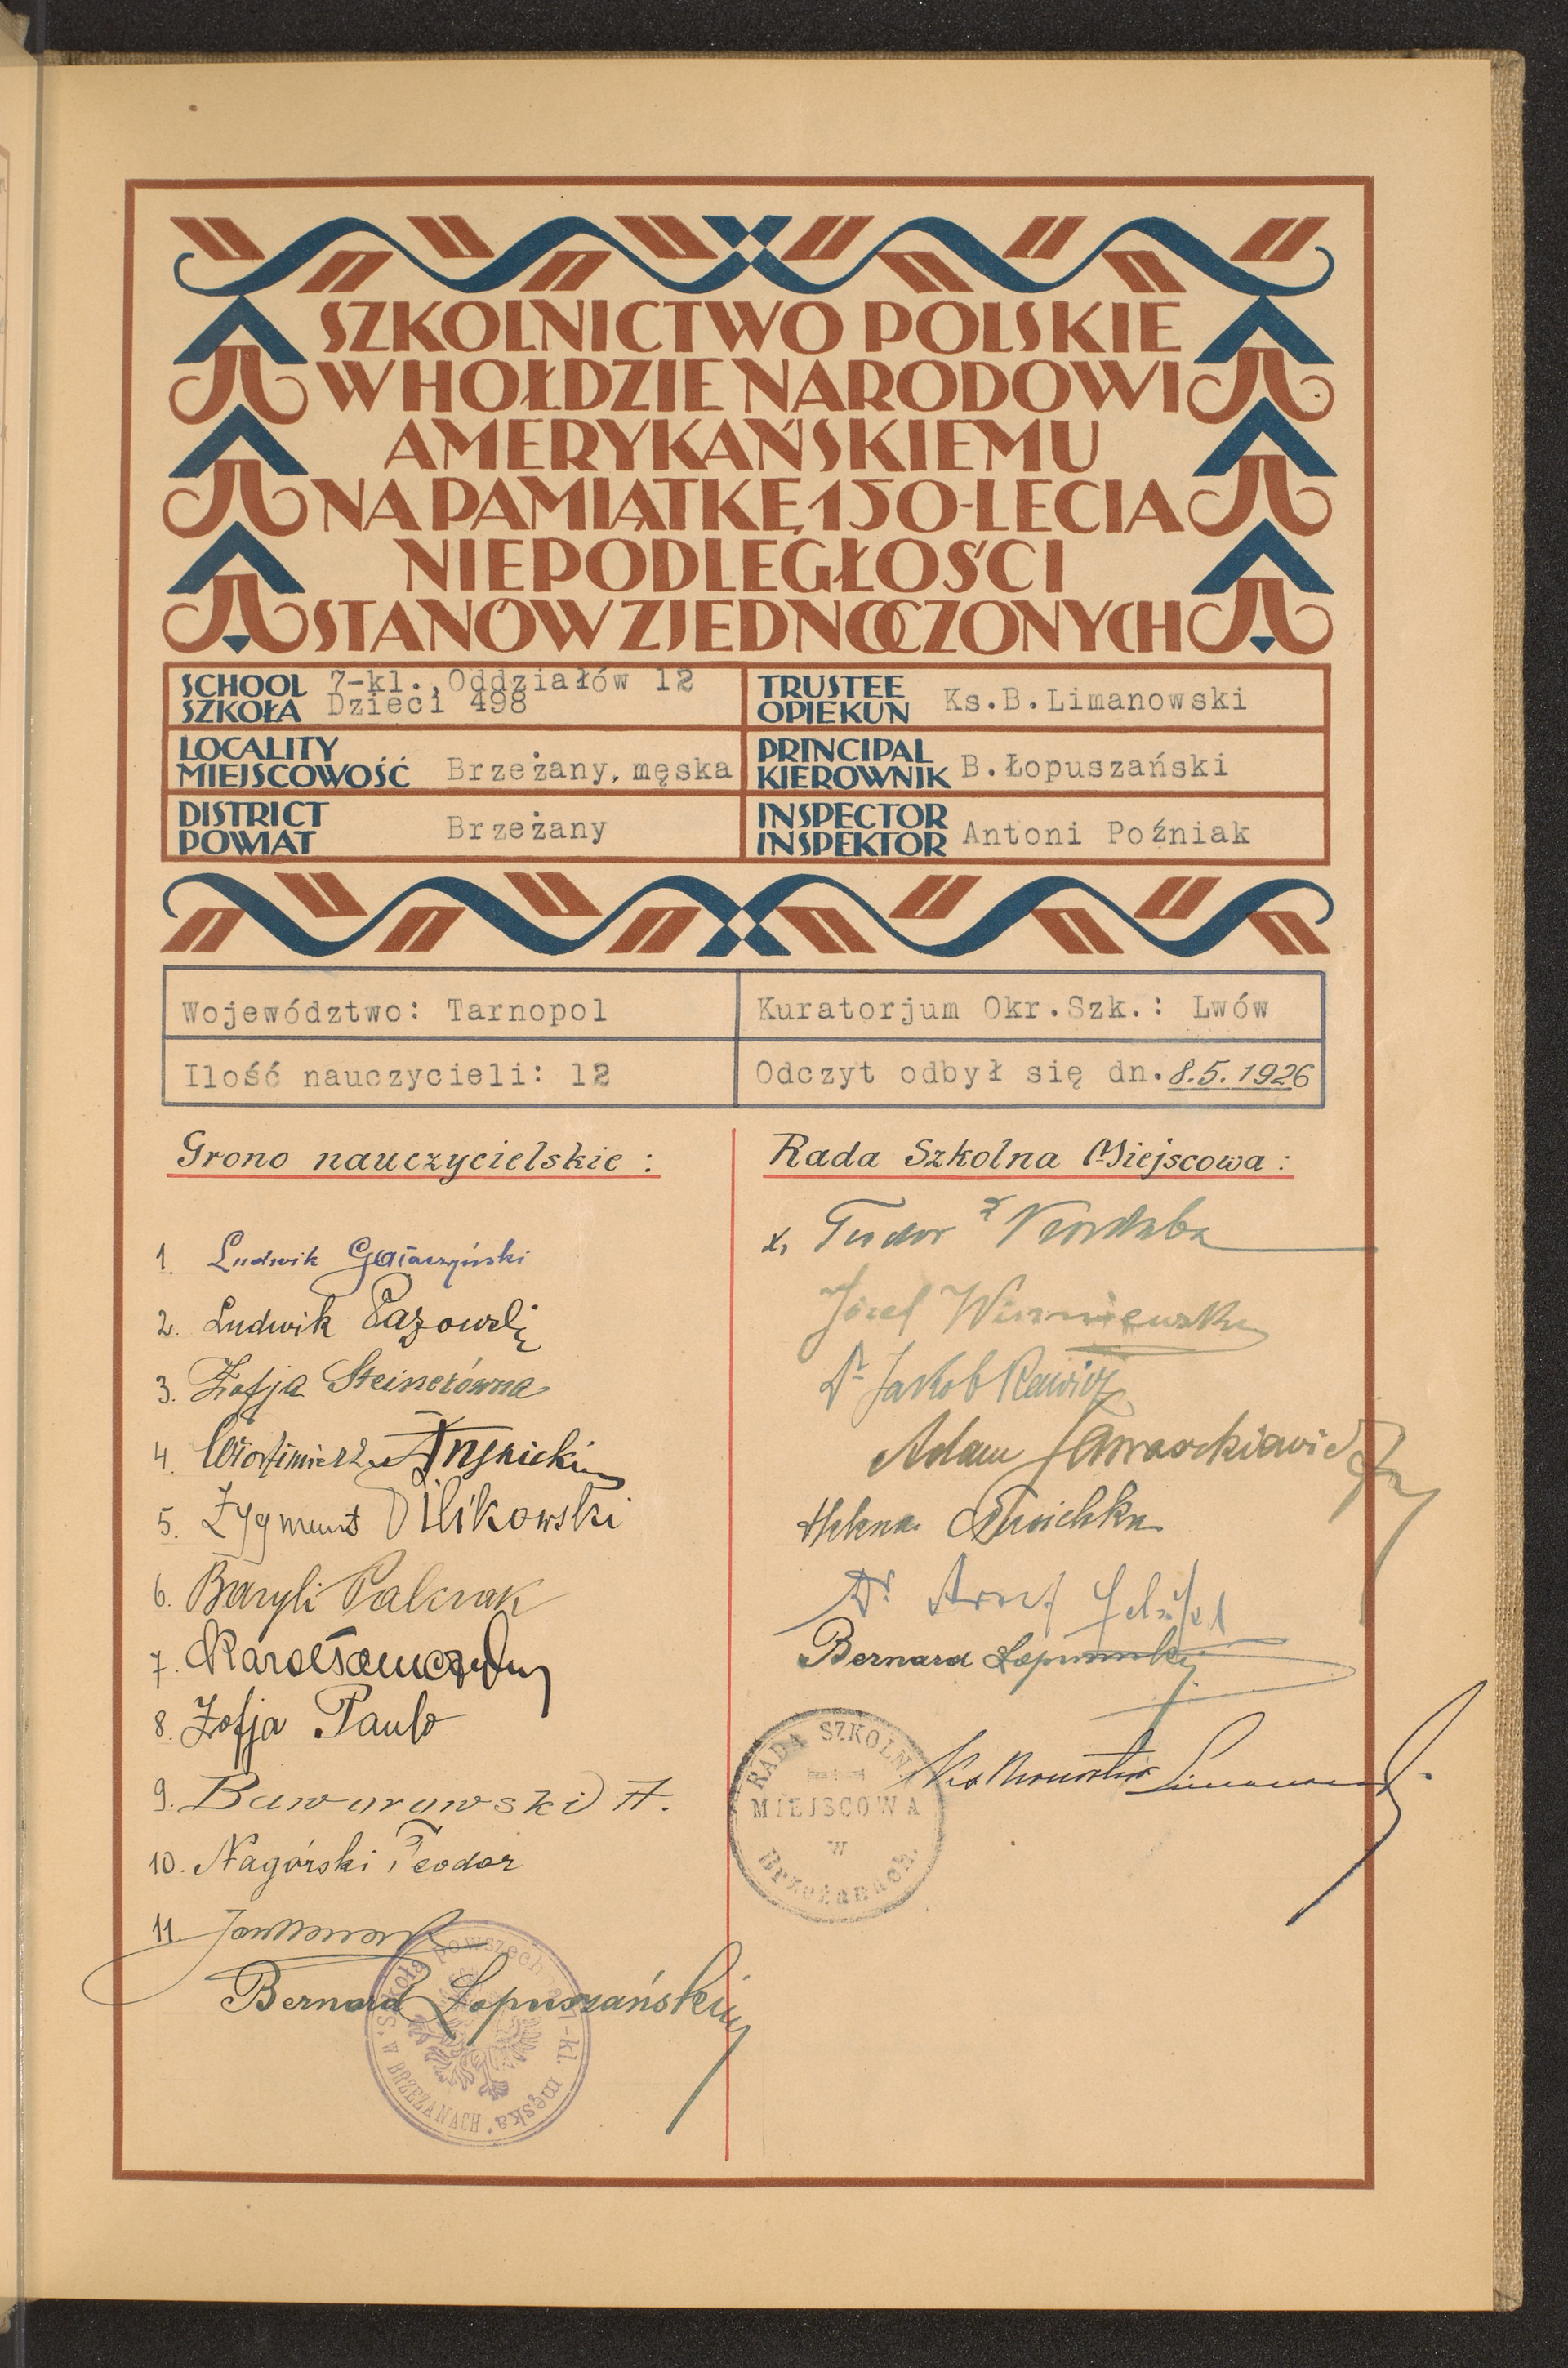 SZKOLNICTWO POLSKIE
W HOŁDZIE NARODOWI
AMERYKAŃSKIEMU
NA PAMIĄTKĘ 150-LECIA
NIEPODLEGŁOŚCI
STANÓW ZJEDNOCZONYCH
SCHOOL
SZKOŁA
7-kl., Oddziałów 12
Dzieci 498
TRUSTEE
OPIEKUN
Ks.B.Limanowski
LOCALITY
MIEJSCOWOŚĆ
Brzeżany, męska
PRINCIPAL
KIEROWNIK
B.Łopuszański
DISTRICT
POWIAT
Brzeżany
INSPECTOR
INSPEKTOR
Antoni Poźniak
Województwo: Tarnopol
Kuratorjum Okr.Szk.: Lwów
Ilość nauczycieli: 12
Odczyt odbył się dn. 8.5.1926
Grono nauczycielskie:
1. Ludwik Gałaczyński
2. Ludwik
3. Zofja Steinerówna
4. Włodzimierz
5. Zygmunt Wilikowski
6. Baryli
7. Karol
8. Zofja Paulo
9. Baworowski A.
10. Nagórski Teodor
11.
Bernard Łopuszański
Szkoła powszechna 7-kl. męska
W BRZEŻANACH
Rada Szkolna Miejscowa:
Józef Wiszniewski
Dr Jakob Rawicz
Adam
Helena
Dr
Bernard Łopuszański
RADA SZKOLNA
MIEJSCOWA
w
Brzeżanach